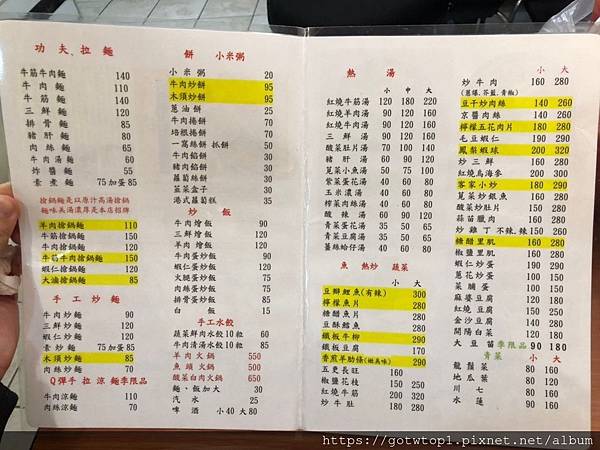 功夫拉麵
牛筋牛肉麵 140
牛肉麵 110
牛筋麵 140
三鮮麵 120
排骨麵 85
豬肝麵 80
肉絲麵 60
牛肉湯麵 60
炸醬麵 55
素煮麵 75加蛋85
搶鍋麵是以原汁高湯搶鍋
麵味美湯濃厚是本店招牌
羊肉搶鍋麵 110
牛筋搶鍋麵 150
牛肉搶鍋麵 120
牛筋牛肉搶鍋麵 150
蝦仁搶鍋麵 120
大滷搶鍋麵 85
手工炒麵
牛肉炒麵 90
三鮮炒麵 120
蝦仁炒麵 120
素炒麵 75加蛋85
木須炒麵 85
肉絲炒麵 70
Q彈手拉涼麵季限品
牛肉涼麵 110
肉絲涼麵 80
餅 小米粥
小米粥 20
牛肉炒餅 95
木須炒餅 95
蔥油餅
牛肉捲餅
培根捲餅
一窩絲餅 抓餅
牛肉餡餅
豬肉餡餅
蘿蔔絲餅
韮菜盒子
港式蘿蔔糕
炒飯
牛肉燴飯 90
三鮮燴飯 120
羊肉燴飯
牛肉蛋炒飯
蝦仁蛋炒飯
火腿蛋炒飯
肉絲蛋炒飯
排骨蛋炒飯
白飯 15
手工水餃
蔬菜鮮肉水餃10粒 60
牛肉清湯水餃10粒 100
羊肉火鍋 550
魚頭火鍋 650
酸菜白肉火鍋 650
麵、飯加大 30
汽水 25
啤酒 小40 大80
熱湯
小 中 大
紅燒牛筋湯 120 180 220
紅燒羊肉湯 90 120 160
紅燒牛肉湯 90 120 160
三鮮湯 90 120 160
酸菜肚片湯 70 90 140
豬肝湯 60 90 120
莧菜小魚湯
紫菜蛋花湯
玉米濃湯
榨菜肉絲湯
酸辣湯
青菜蛋花湯
青菜豆腐湯
薑絲蛤仔湯
魚 熱炒 蔬菜
小 大
豆瓣鯉魚(有辣) 300
檸檬魚片 280
糖醋魚片 280
豆酥鱈魚 280
鐵板牛柳 280
鐵板豆腐 170
香煎羊肋條(嫩美味) 290
五更長旺 160
椒鹽花枝 150 250
紅燒牛筋 200 320
炒牛肚 160 280
小 大
炒牛肉 160 280
(蔥爆、芥藍、青椒)
豆干炒肉絲 140 260
京醬肉絲 140 260
檸檬五花肉片 180 280
毛豆蝦仁 190 290
鳳梨蝦球 200 320
炒三鮮 160 280
紅燒烏海參 200 300
客家小炒 180 290
莧菜炒銀魚 160 280
酸菜炒肚片 150 250
蒜苗臘肉 160 280
炒雞丁 不辣、辣 150 250
糖醋里肌 160 280
椒鹽里肌 160 280
蝦仁炒蛋
蔥花炒蛋
菜脯蛋
麻婆豆腐
紅燒豆腐
金沙豆腐
開陽白菜
大豆苗 季限品 90 180
青菜 小 大
龍鬚菜 80 160
地瓜葉 80 160
川七 80 160
水蓮 90 160
https://gotwtop1.pixnet.net/album